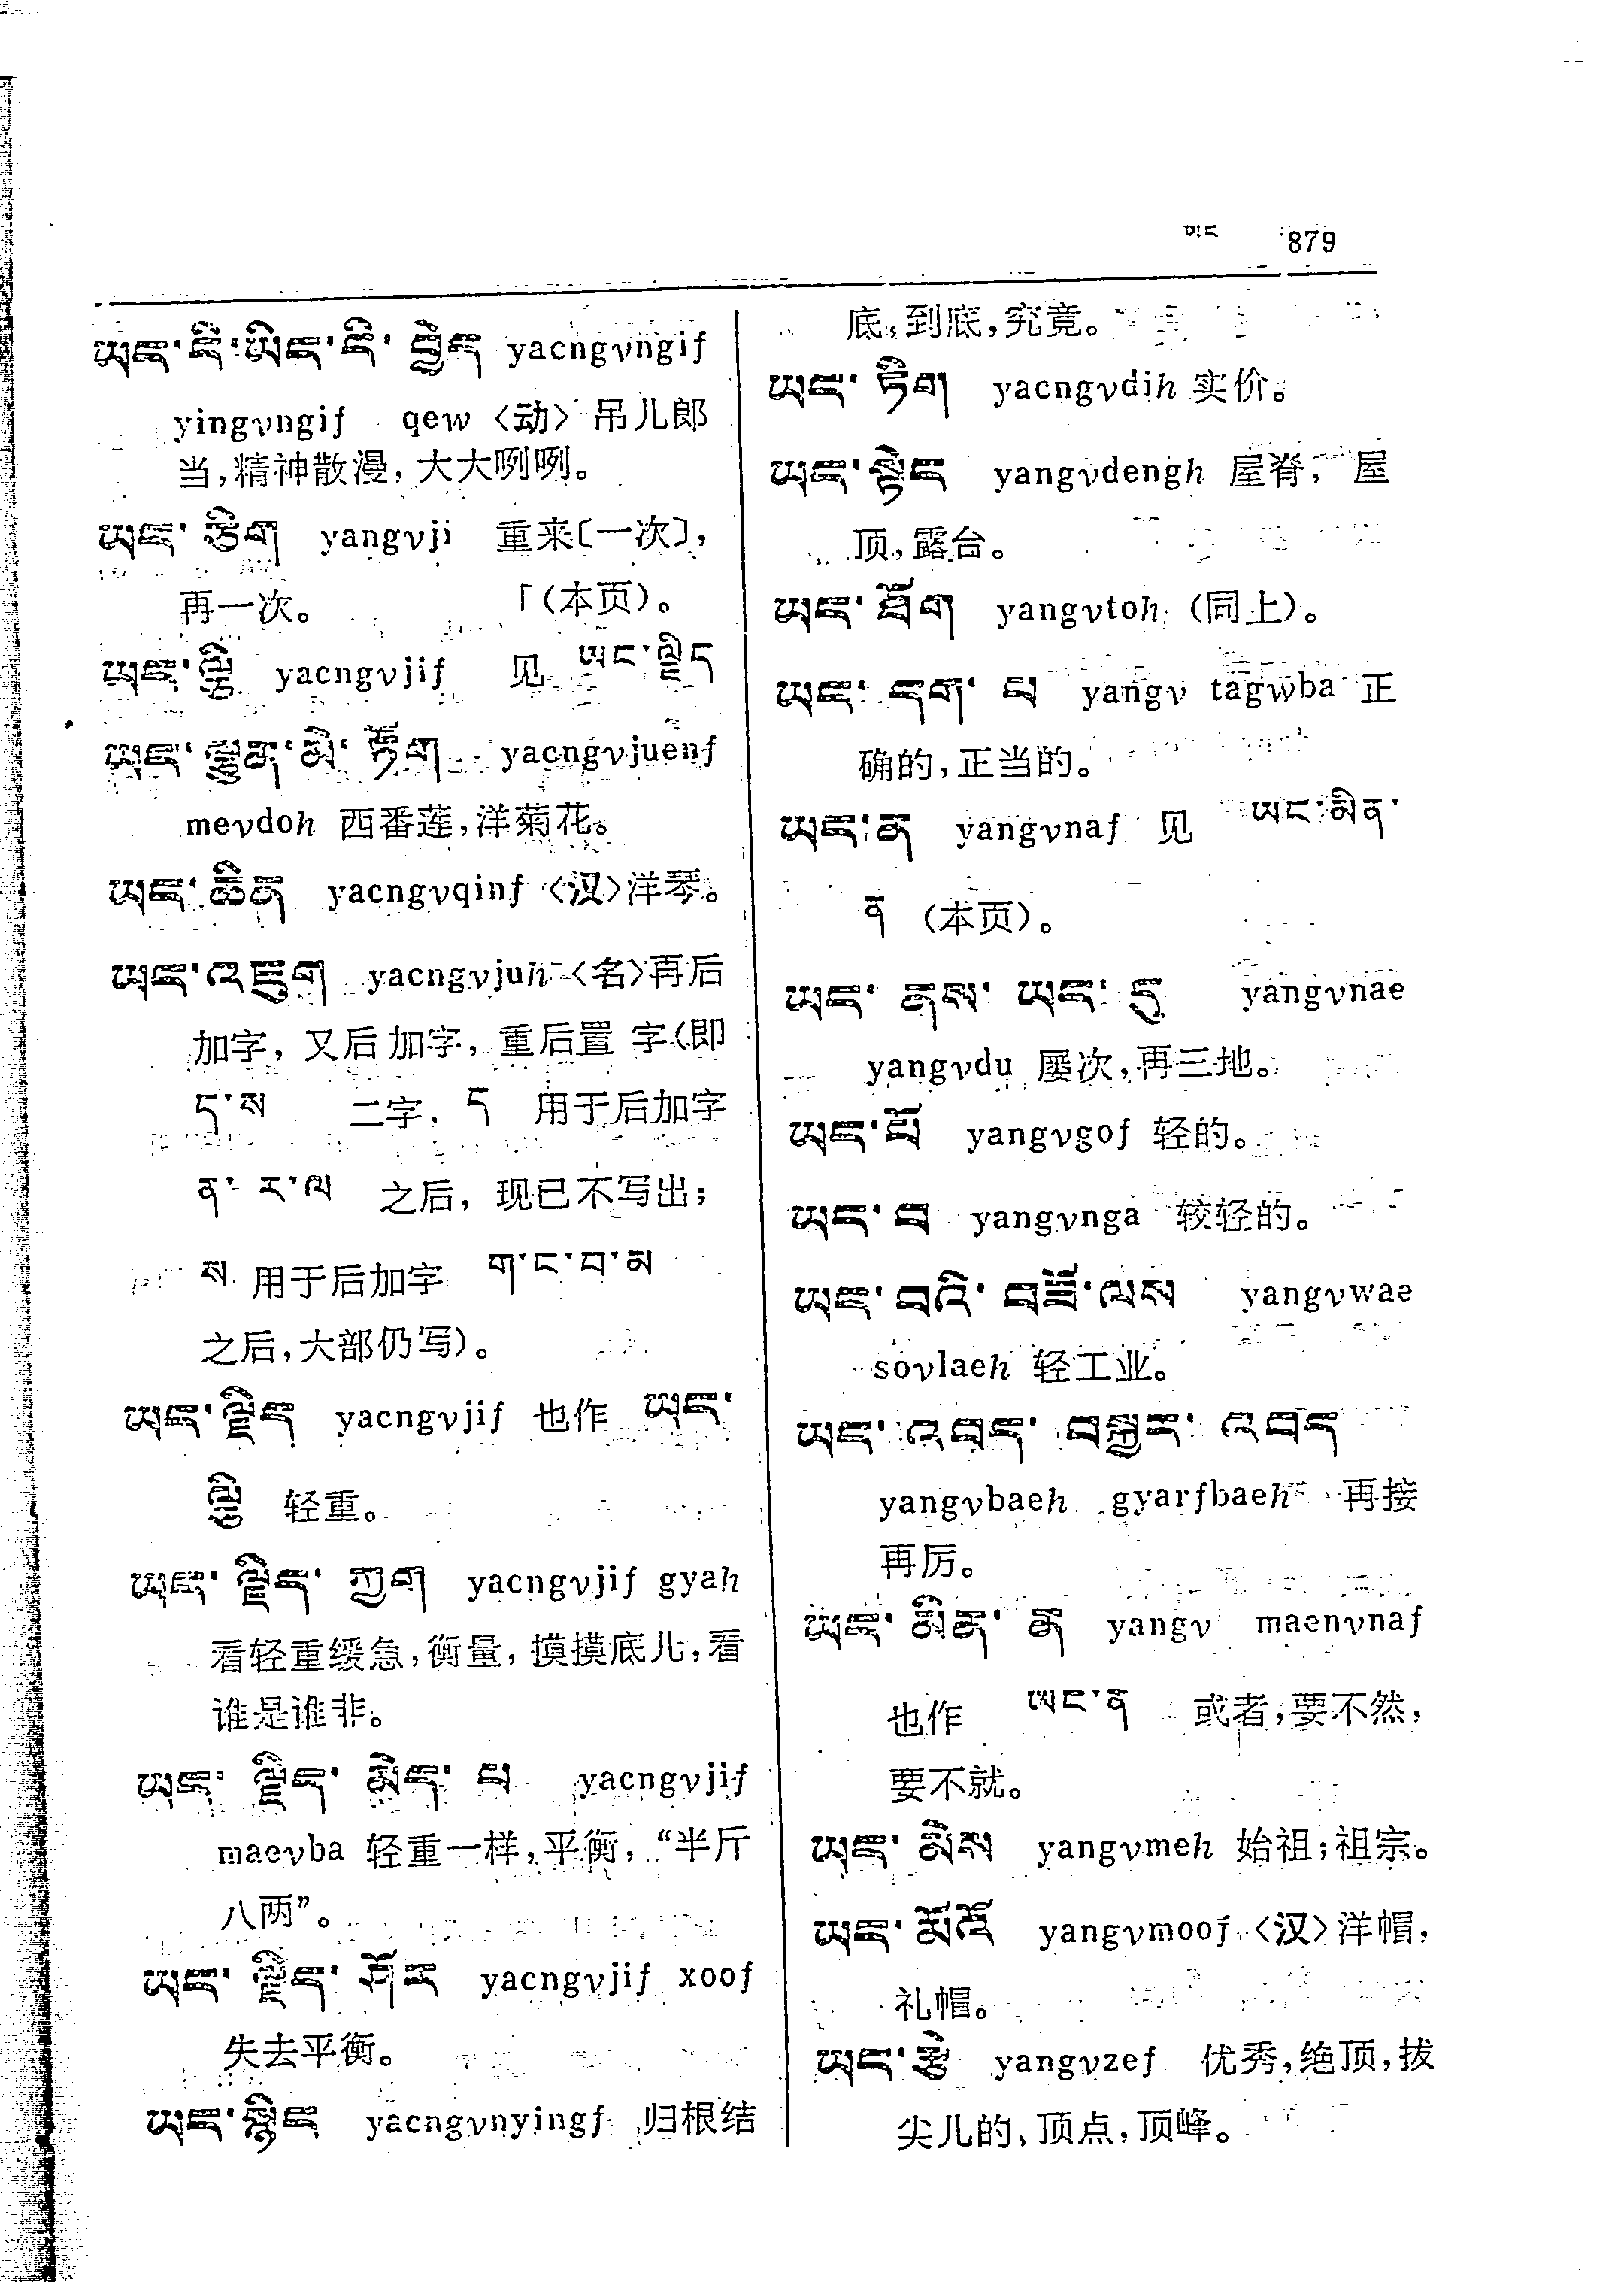 ཡང 879
ཡང་ངི་ཡིང་ངི་བྱེད yacngvngif
yingvngif qew〈动〉吊儿郎
当，精神散漫，大大咧咧。
ཡང་ཅིག yangvji 重来〔一次〕，
再一次。「（本页）。
ཡང་ལྕི yacngvjif 见 ཡང་ལྗིད
ཡང་ལྕུན་མེ་ཏོག yacngvjuenf
mevdoh 西番莲，洋菊花。
ཡང་ཆིན yacngvqinf〈汉〉洋琴。
ཡང་འཇུག yacngvjuh〈名〉再后
加字，又后加字，重后置字（即
ད་ས 二字，ད 用于后加字
ན་ར་ལ 之后，现已不写出；
ས 用于后加字 ག་ང་བ་མ
之后，大部仍写）。
ཡང་ལྗིད yacngvjif 也作 ཡང་
ལྕི 轻重。
ཡང་ལྗིད་ཀྱག yacngvjif gyah
看轻重缓急，衡量，摸摸底儿，看
谁是谁非。
ཡང་ལྗིད་མེད་པ yacngvjif
maevba 轻重一样，平衡，“半斤
八两”。
ཡང་ལྗིད་ཤོར yacngvjif xoof
失去平衡。
ཡང་སྙིང yacngvnyingf 归根结
底，到底，究竟。
ཡང་ཏིག yacngvdih 实价。
ཡང་སྟེང yangvdengh 屋脊，屋
顶，露台。
ཡང་ཐོག yangvtoh（同上）。
ཡང་དག་པ yangv tagwba 正
确的，正当的。
ཡང་ན yangvnaf 见 ཡང་མིན་
ན（本页）。
ཡང་ནས་ཡང་དུ yangvnae
yangvdu 屡次，再三地。
ཡང་པོ yangvgof 轻的。
ཡང་བ yangvnga 较轻的。
ཡང་བའི་བཟོ་ལས yangvwae
sovlaeh 轻工业。
ཡང་འབད་བསྐྱར་འབད
yangvbaeh gyarfbaeh 再接
再厉。
ཡང་མིན་ན yangv maenvnaf
也作 ཡང་ན 或者，要不然，
要不就。
ཡང་མེས yangvmeh 始祖；祖宗。
ཡང་མོའོ yangvmoof〈汉〉洋帽，
礼帽。
ཡང་རྩེ yangvzef 优秀，绝顶，拔
尖儿的、顶点，顶峰。